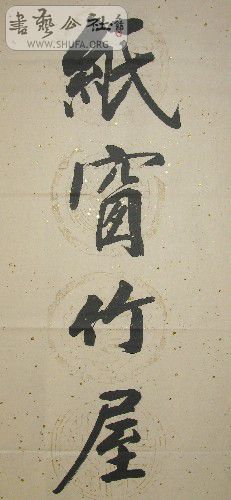 書藝公社
WWW.SHUFA.ORG
紙窗竹屋